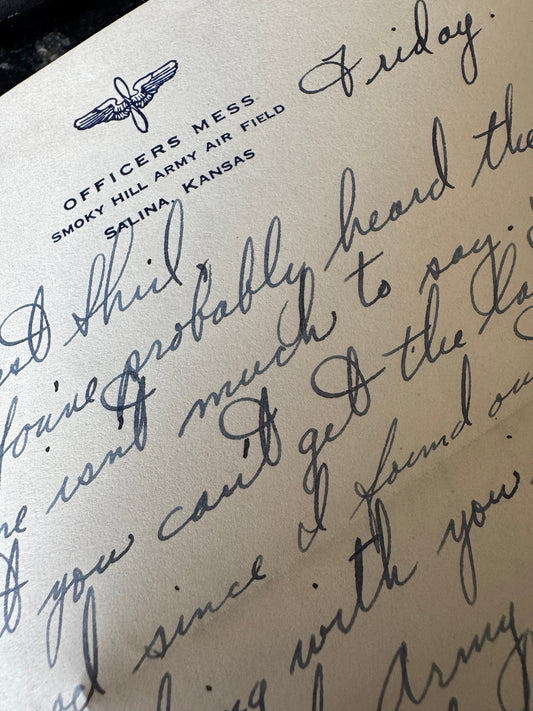 Friday.
OFFICERS MESS
SMOKY HILL ARMY AIR FIELD
SALINA, KANSAS
st Shirl,
You've probably heard the
re isn't much to say.
t you can't get the
d since I found ou
ng with you
Army